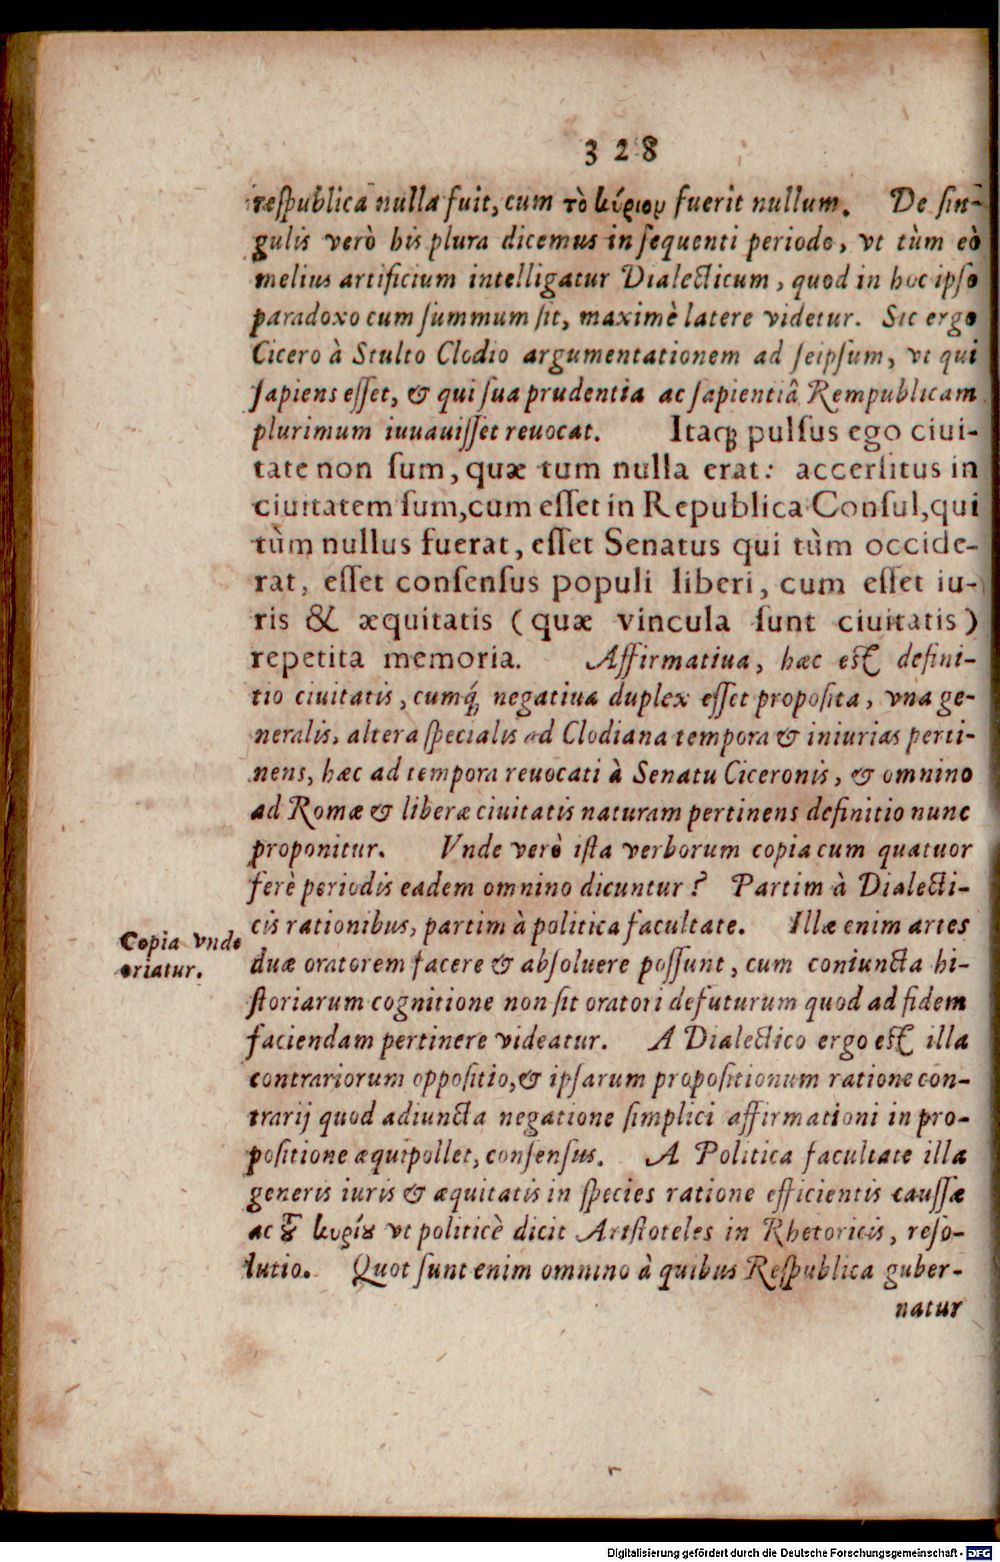 328
respublica nulla fuit, cum τὸ κύριον fuerit nullum. De sin-
gulis verò his plura dicemus in sequenti periodo, vt tùm eò
melius artificium intelligatur Dialecticum, quod in hoc ipso
paradoxo cum summum sit, maximè latere videtur. Sic ergo
Cicero à Stulto Clodio argumentationem ad seipsum, vt qui
sapiens esset, & qui sua prudentia ac sapientiâ Rempublicam
plurimum iuuauisset reuocat. Itaq; pulsus ego ciui-
tate non sum, quæ tum nulla erat: accersitus in
ciuitatem sum, cum esset in Republica Consul, qui
tùm nullus fuerat, esset Senatus qui tùm occide-
rat, esset consensus populi liberi, cum esset iu-
ris & æquitatis (quæ vincula sunt ciuitatis)
repetita memoria. Affirmatiua, hæc est defini-
tio ciuitatis, cumq́; negatiua duplex esset proposita, vna ge-
neralis, altera specialis ad Clodiana tempora & iniurias perti-
nens, hæc ad tempora reuocati à Senatu Ciceronis, & omnino
ad Romæ & liberæ ciuitatis naturam pertinens definitio nunc
proponitur. Vnde verò ista verborum copia cum quatuor
ferè periodis eadem omnino dicuntur? Partim à Dialecti-
cis rationibus, partim à politica facultate. Illæ enim artes
Copia vnde
oriatur.
duæ oratorem facere & absoluere possunt, cum coniuncta hi-
storiarum cognitione non sit oratori defuturum quod ad fidem
faciendam pertinere videatur. A Dialectico ergo est illa
contrariorum oppositio, & ipsarum propositionum ratione con-
trarij quod adiuncta negatione simplici affirmationi in pro-
positione æquipollet, consensus. A Politica facultate illa
generis iuris & æquitatis in species ratione efficientis caussæ
ac τȣ͂ κυρίȣ vt politicè dicit Aristoteles in Rhetoricis, reso-
lutio. Quot sunt enim omnino à quibus Respublica guber-
natur
Digitalisierung gefördert durch die Deutsche Forschungsgemeinschaft - DFG